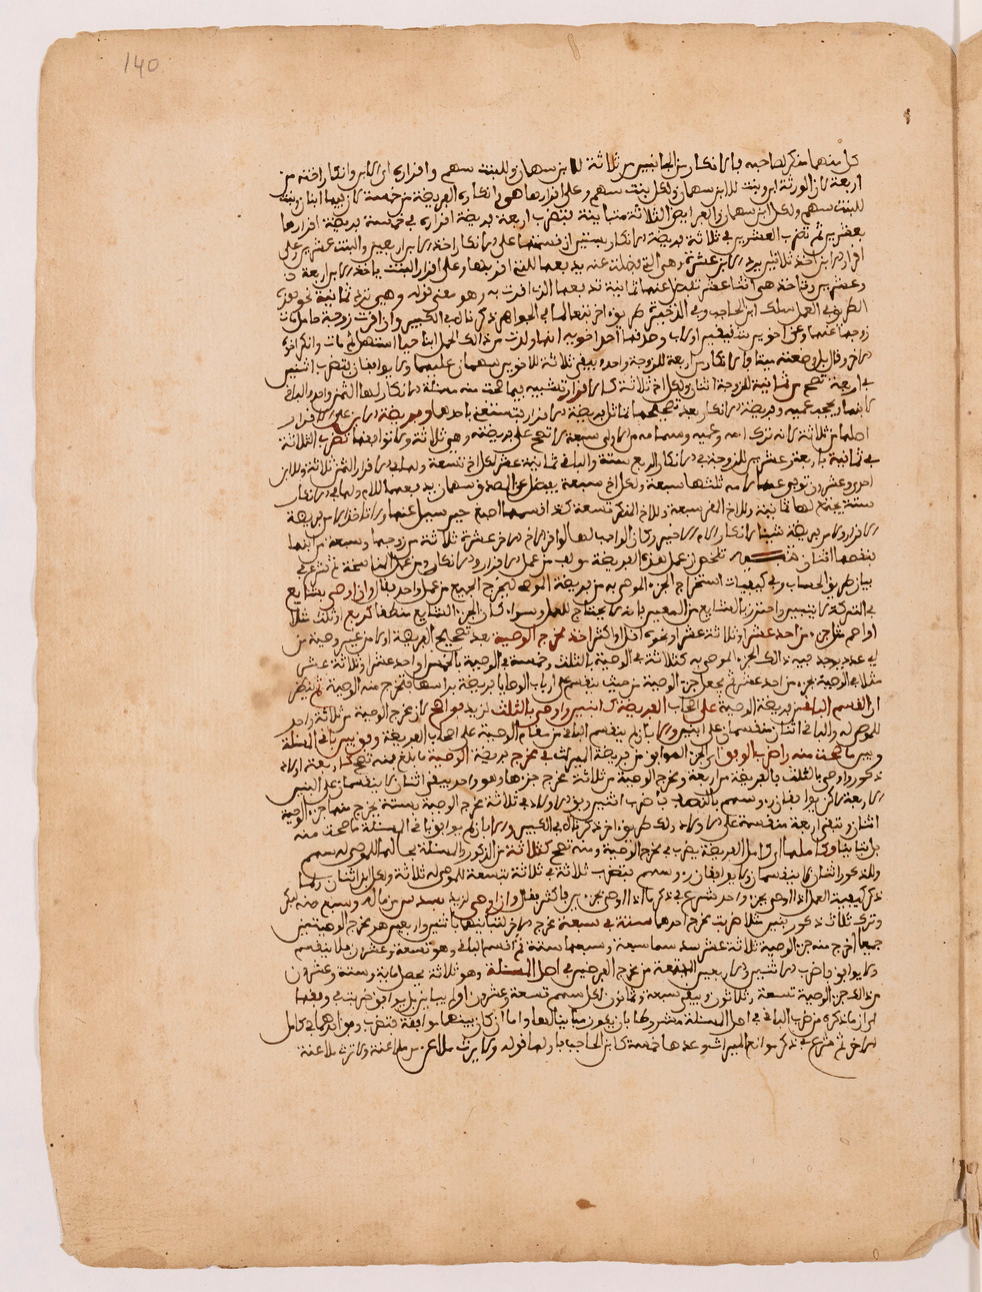 140
كل منهما منكر لصاحبه فالانكار من الجانبين من ثلاثة للابن سهمان وللبنت سهم واقراره اي الابن وانكار اخته من
اربعة لان الورثة ابن وبنت للابن سهمان ولكل بنت سهم وعلى اقرارها هو في انكاره الفريضة من خمسة لان فيها ابنان وبنت
للبنت سهم ولكل ابن سهمان والفرايض الثلاثة متباينة فتضرب اربعة فريضة اقراره في خمسة فريضة اقرارها
بعشرين ثم تضرب العشرين في ثلاثة فريضة الانكار بستين اقسمها على الانكار اخذ الابن اربعين والبنت عشرين وعلى
اقرار الابن اخذ ثلاثين يرد الابن عشرة وهي التي فضلت عنه يدفعها للتي اقر بها وعلى اقرار البنت ياخذ الابن اربعة و
وعشرين وتاخذ هي اثنا عشر تفضل عنها ثمانية تدفعها الذي اقرت به وهو معنى قوله وهي ترد ثمانية نحو هذه
الطريق في العمل سلك ابن الحاجب وفي الذخيرة طريقة اخرى تبعا لما في الجواهر ذكرناها في الكبير وان اقرت زوجة حامل مات
زوجها عنها وعن اخوين شقيقين او لاب وحدهما احد اخويه انها ولدت من ذلك الحمل ابنا حيا استهل ثم مات وانكر اخوه
الاخر وقال بل وضعته ميتا فالانكار من اربعة للزوجة واحد يبقى ثلاثة للاخوين سهمان عليهما ولا يوافقان فتضرب اثنين
في اربعة تصح من ثمانية للزوجة اثنان ولكل اخ ثلاثة كالاقرار تشبيه فيما صحت منه مسئلة الانكار لها الثمن واحد والباقي
للابن ويحجب عميه وفريضة الانكار بعد تصحيحها تماثل فريضة الاقرار فيستغنى باحدها وفريضة الابن على الاقرار
اصلها من ثلاثة لانه ترك امه وعميه وسهامه من الاولى سبعة لا تصح على فريضته وهي ثلاثة ولا توافقها تضرب الثلاثة
في ثمانية باربعة وعشرين للزوجة في الانكار الربع ستة والباقي ثمانية عشر لكل اخ تسعة ولها في الاقرار الثمن ثلاثة وللابن
احد وعشرون توفي عنها لامه ثلثها سبعة ولكل اخ سبعة يفضل عن المصدق سهمان يدفعهما للام ولها في الانكار
ستة يجتمع لها ثمانية وللاخ المقر سبعة وللاخ المنكر تسعة
الاقرار
بنفصها اثنان تلخص من عمل هذه الفريضة مولف من عمل الاقرار والانكار ومن عمل المناسخة ثم شرع في
بيان طريق الحساب وفي كيفيات استخراج الجزء الموصى به من فريضة الموصى ليخرج الجميع من عمل واحد فقال وان اوصى بشايع
في التركة لا بمعين واحترز بالشايع من المعين فانه لا يحتاج للعمل وسواء كان الجزء الشايع منطقا كربع او ثلث مثلا
او اصم مثل جزء من احد عشر او ثلاثة عشر او نحوه اقل او اكثر اخذ مخرج الوصية بعد تصحيح الفريضة اولا من غير وصية من
اي عدد يوجد فيه ذلك الجزء الموصى به كثلاثة في الوصية بالثلث وخمسة في الوصية بالخمس او احد عشر او ثلاثة عشر
مثلا في الوصية بجزء من احد عشر ثم يجعل جزء الوصية من حيث ينقسم على ارباب الوصايا فريضة براسها فتخرج منه الوصية ثم ينظر
ان انقسم الباقي من فريضة الوصية على اصحاب الفريضة كابنين واوصى بالثلث لزيد فواضح لان مخرج الوصية من ثلاثة واحد
للموصى له والباقي اثنان منقسمان على ابنين والا بان لم ينقسم الباقي من مقام الوصية على اصحاب الفريضة وفق بين باقي المسئلة
وبين ما صحت منه واضرب الوفق اي الجزء الموافق من فريضة الميراث في مخرج فريضة الوصية فما بلغ فمنه تصح كاربعة اولاد
ذكور واوصى بالثلث فالفريضة من اربعة ومخرج الوصية من ثلاثة مخرج جزءها وهو واحد يبقى اثنان لا ينقسمان على البنين
الاربعة لاكن يوافقان وسهم بالنصف فاضرب اثنين وفق الاولاد في ثلاثة مخرج الوصية بستة يخرج منها جزء الوصية
اثنان وتبقى اربعة منقسمة على الاولاد وذلك طريقة اخرى ذكرناها في الكبير والا بان لم يوافق باقي المسئلة ما صحت منه
بل تباينا وكاملها اي كامل الفريضة يضرب في مخرج الوصية ومنه تصح كثلاثة من الذكور والمسئلة بحالها للموصى له سهم
وللذكور اثنان لا ينقسمان ولا يوافقان وسهم فتضرب ثلاثة في ثلاثة بتسعة للموصى له ثلاثة ولكل ابن اثنان ولما
ذكر كيفية العمل اذا اوصى بجزء واحد شرع في ذكر ما اذا اوصى بجزءين فاكثر فقال وان اوصى لزيد بسدس من ماله وسبع منه لبكر
وترك ثلاث ذكور بنين مثلا ضربت مخرج احدهما ستة في سبعة مخرج الاخر لتباينهما باثنين واربعين هو مخرج الوصيتين
جميعا اخرج منه جزء الوصية ثلاثة عشر سدسها سبعة وسبعها ستة ثم اقسم الباقي وهو تسعة وعشرون فلا ينقسم
ولا يوافق فاضرب الاثنين والاربعين المجتمعة من مخرج الفرضين في اصل المسئلة وهو ثلاثة يحصل ماية وستة وعشرون
من ذلك جزء الوصية تسعة وثلاثون ويبقى سبعة وثمانون لكل سهم تسعة وعشرون او لم يباين بل يوافق ضربت في وفقها
اي ان ما ذكره من ضرب الباقي في اصل المسئلة مشروطا بان يكون مباينا لها واما ان كان بينهما موافقة فتضرب وفق احدهما في كامل
الاخر ثم شرع في ذكر موانع الميراث وعدها خمسة كابن الحاجب باولها قوله ولا يرث ملاعن من ملاعنة ولا ترث ملاعنة